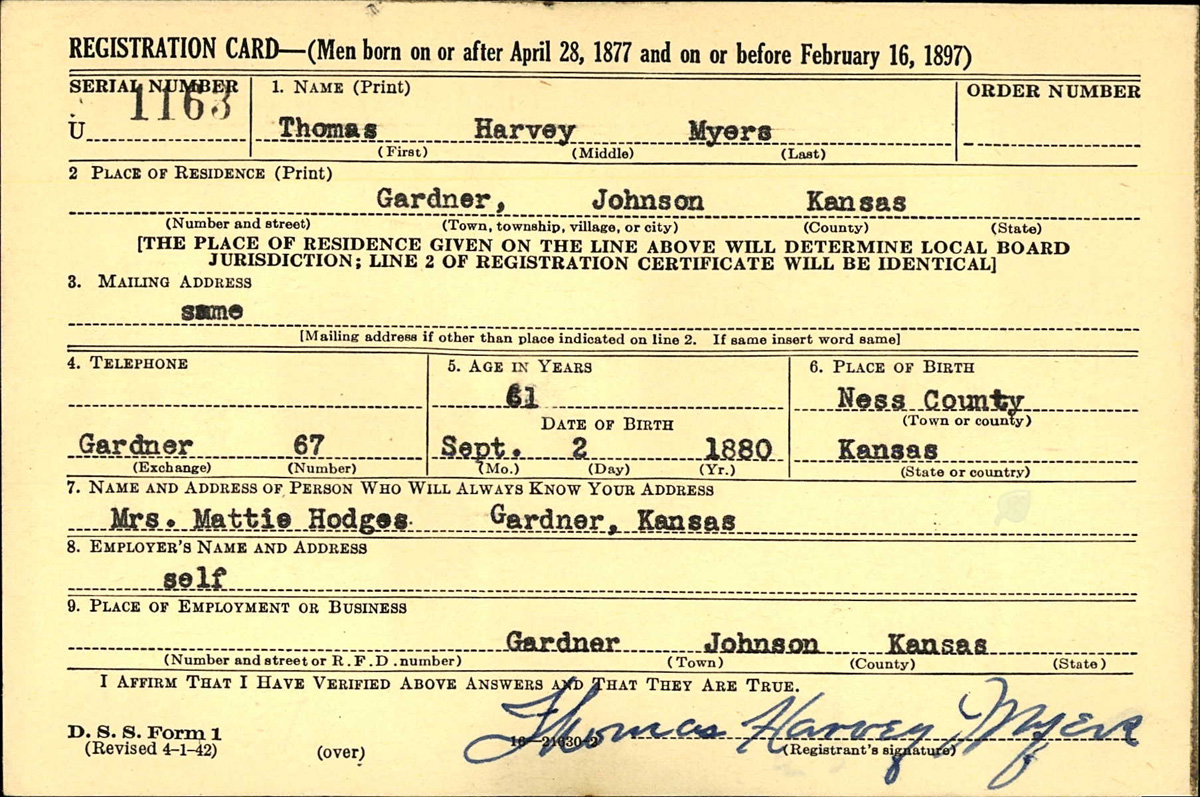 REGISTRATION CARD—(Men born on or after April 28, 1877 and on or before February 16, 1897)
SERIAL NUMBER 1. NAME (Print) ORDER NUMBER
1163
U Thomas Harvey Myers
(First) (Middle) (Last)
2 PLACE OF RESIDENCE (Print)
Gardner, Johnson Kansas
(Number and street) (Town, township, village, or city) (County) (State)
[THE PLACE OF RESIDENCE GIVEN ON THE LINE ABOVE WILL DETERMINE LOCAL BOARD
JURISDICTION; LINE 2 OF REGISTRATION CERTIFICATE WILL BE IDENTICAL]
3. MAILING ADDRESS
same
[Mailing address if other than place indicated on line 2. If same insert word same]
4. TELEPHONE 5. AGE IN YEARS 6. PLACE OF BIRTH
61 Ness County
DATE OF BIRTH (Town or county)
Gardner 67 Sept. 2 1880 Kansas
(Exchange) (Number) (Mo.) (Day) (Yr.) (State or country)
7. NAME AND ADDRESS OF PERSON WHO WILL ALWAYS KNOW YOUR ADDRESS
Mrs. Mattie Hodges Gardner, Kansas
8. EMPLOYER'S NAME AND ADDRESS
self
9. PLACE OF EMPLOYMENT OR BUSINESS
Gardner Johnson Kansas
(Number and street or R. F. D. number) (Town) (County) (State)
I AFFIRM THAT I HAVE VERIFIED ABOVE ANSWERS AND THAT THEY ARE TRUE.
Thomas Harvey Myers
D. S. S. Form 1
(Revised 4-1-42) (over) 16—21630-2 (Registrant's signature)